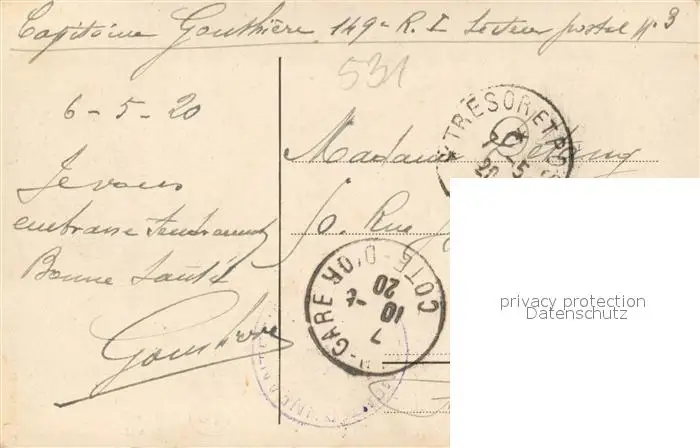 Capitaine Gouthière 149e R. I Secteur postal No 3
531
6-5-20
Je vous
embrasse tendrement
Bonne Santé
Gouthière
Madame
50. Rue
TRESOR ET PO
7 -5
20
GARE
COTE-D'OR
7
10 -5
20
privacy protection
Datenschutz